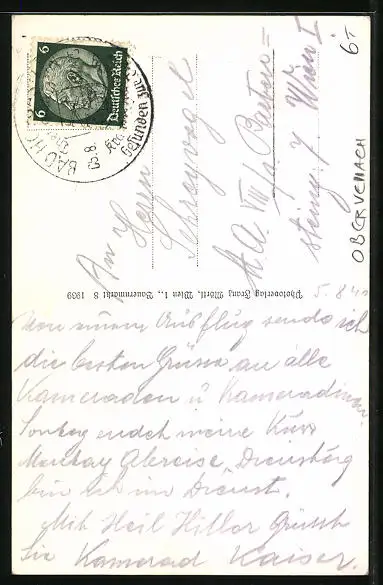 6
6
Deutsches Reich
BAD
8
Gesunden
6T
OBERVELLACH
An Herrn
Schreyvogel
St. A. VIII/
Wien I
Photoverlag Franz Mörtl, Wien I., Bauernmarkt 8 1939
5.8.4
Von einem Ausflug sende ich
die besten Grüsse an alle
Kameraden u Kameradinnen
Sontag endet meine Kur
Montag Abreise, Dienstag
bin ich im Dienst.
Mit Heil Hitler Grüsst
Sie Kamerad Kaiser.